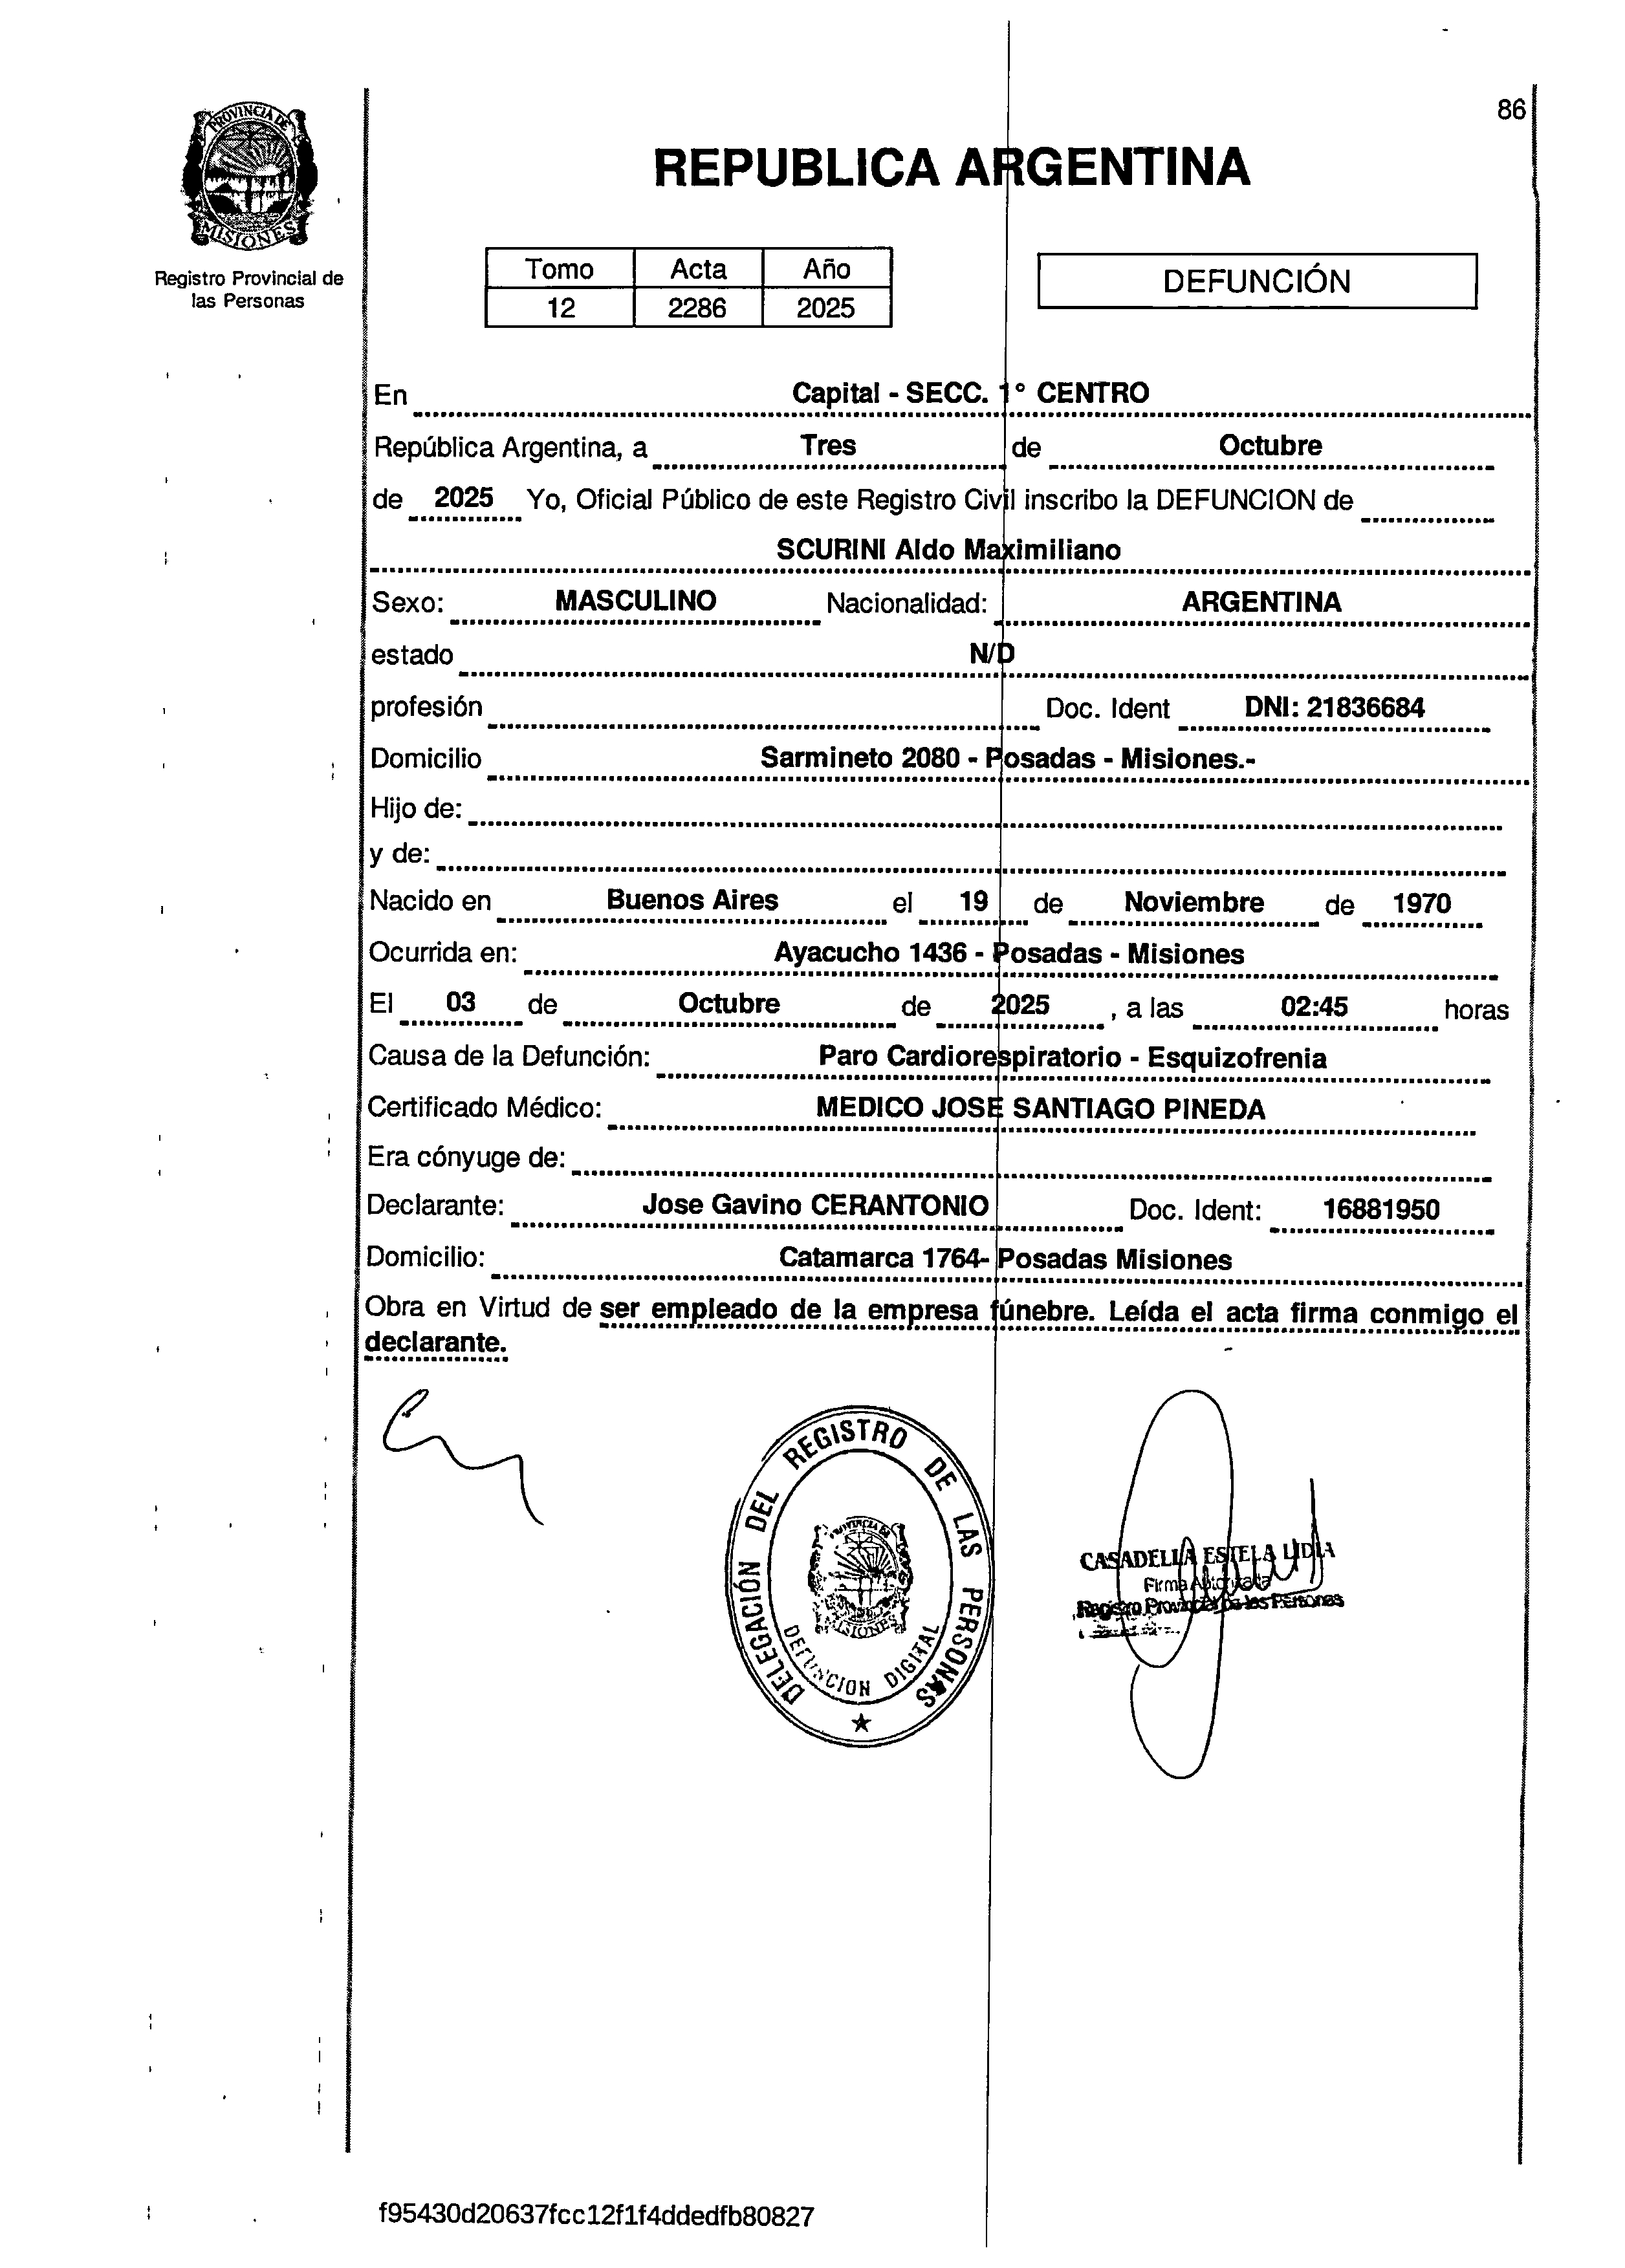 86
PROVINCIA DE
MISIONES
Registro Provincial de
las Personas
REPUBLICA ARGENTINA
Tomo Acta Año
12 2286 2025
DEFUNCIÓN
En Capital - SECC. 1° CENTRO
República Argentina, a Tres de Octubre
de 2025 Yo, Oficial Público de este Registro Civil inscribo la DEFUNCION de
SCURINI Aldo Maximiliano
Sexo: MASCULINO Nacionalidad: ARGENTINA
estado N/D
profesión Doc. Ident DNI: 21836684
Domicilio Sarmineto 2080 - Posadas - Misiones.-
Hijo de:
y de:
Nacido en Buenos Aires el 19 de Noviembre de 1970
Ocurrida en: Ayacucho 1436 - Posadas - Misiones
El 03 de Octubre de 2025 , a las 02:45 horas
Causa de la Defunción: Paro Cardiorespiratorio - Esquizofrenia
Certificado Médico: MEDICO JOSE SANTIAGO PINEDA
Era cónyuge de:
Declarante: Jose Gavino CERANTONIO Doc. Ident: 16881950
Domicilio: Catamarca 1764- Posadas Misiones
Obra en Virtud de ser empleado de la empresa fúnebre. Leída el acta firma conmigo el
declarante.
DELEGACIÓN DEL REGISTRO DE LAS PERSONAS
PROVINCIA DE
MISIONES
DEFUNCION DIGITAL
CASADELLA ESTELA LIDIA
Firma Autorizada
Registro Provincial de las Personas
f95430d20637fcc12f1f4ddedfb80827